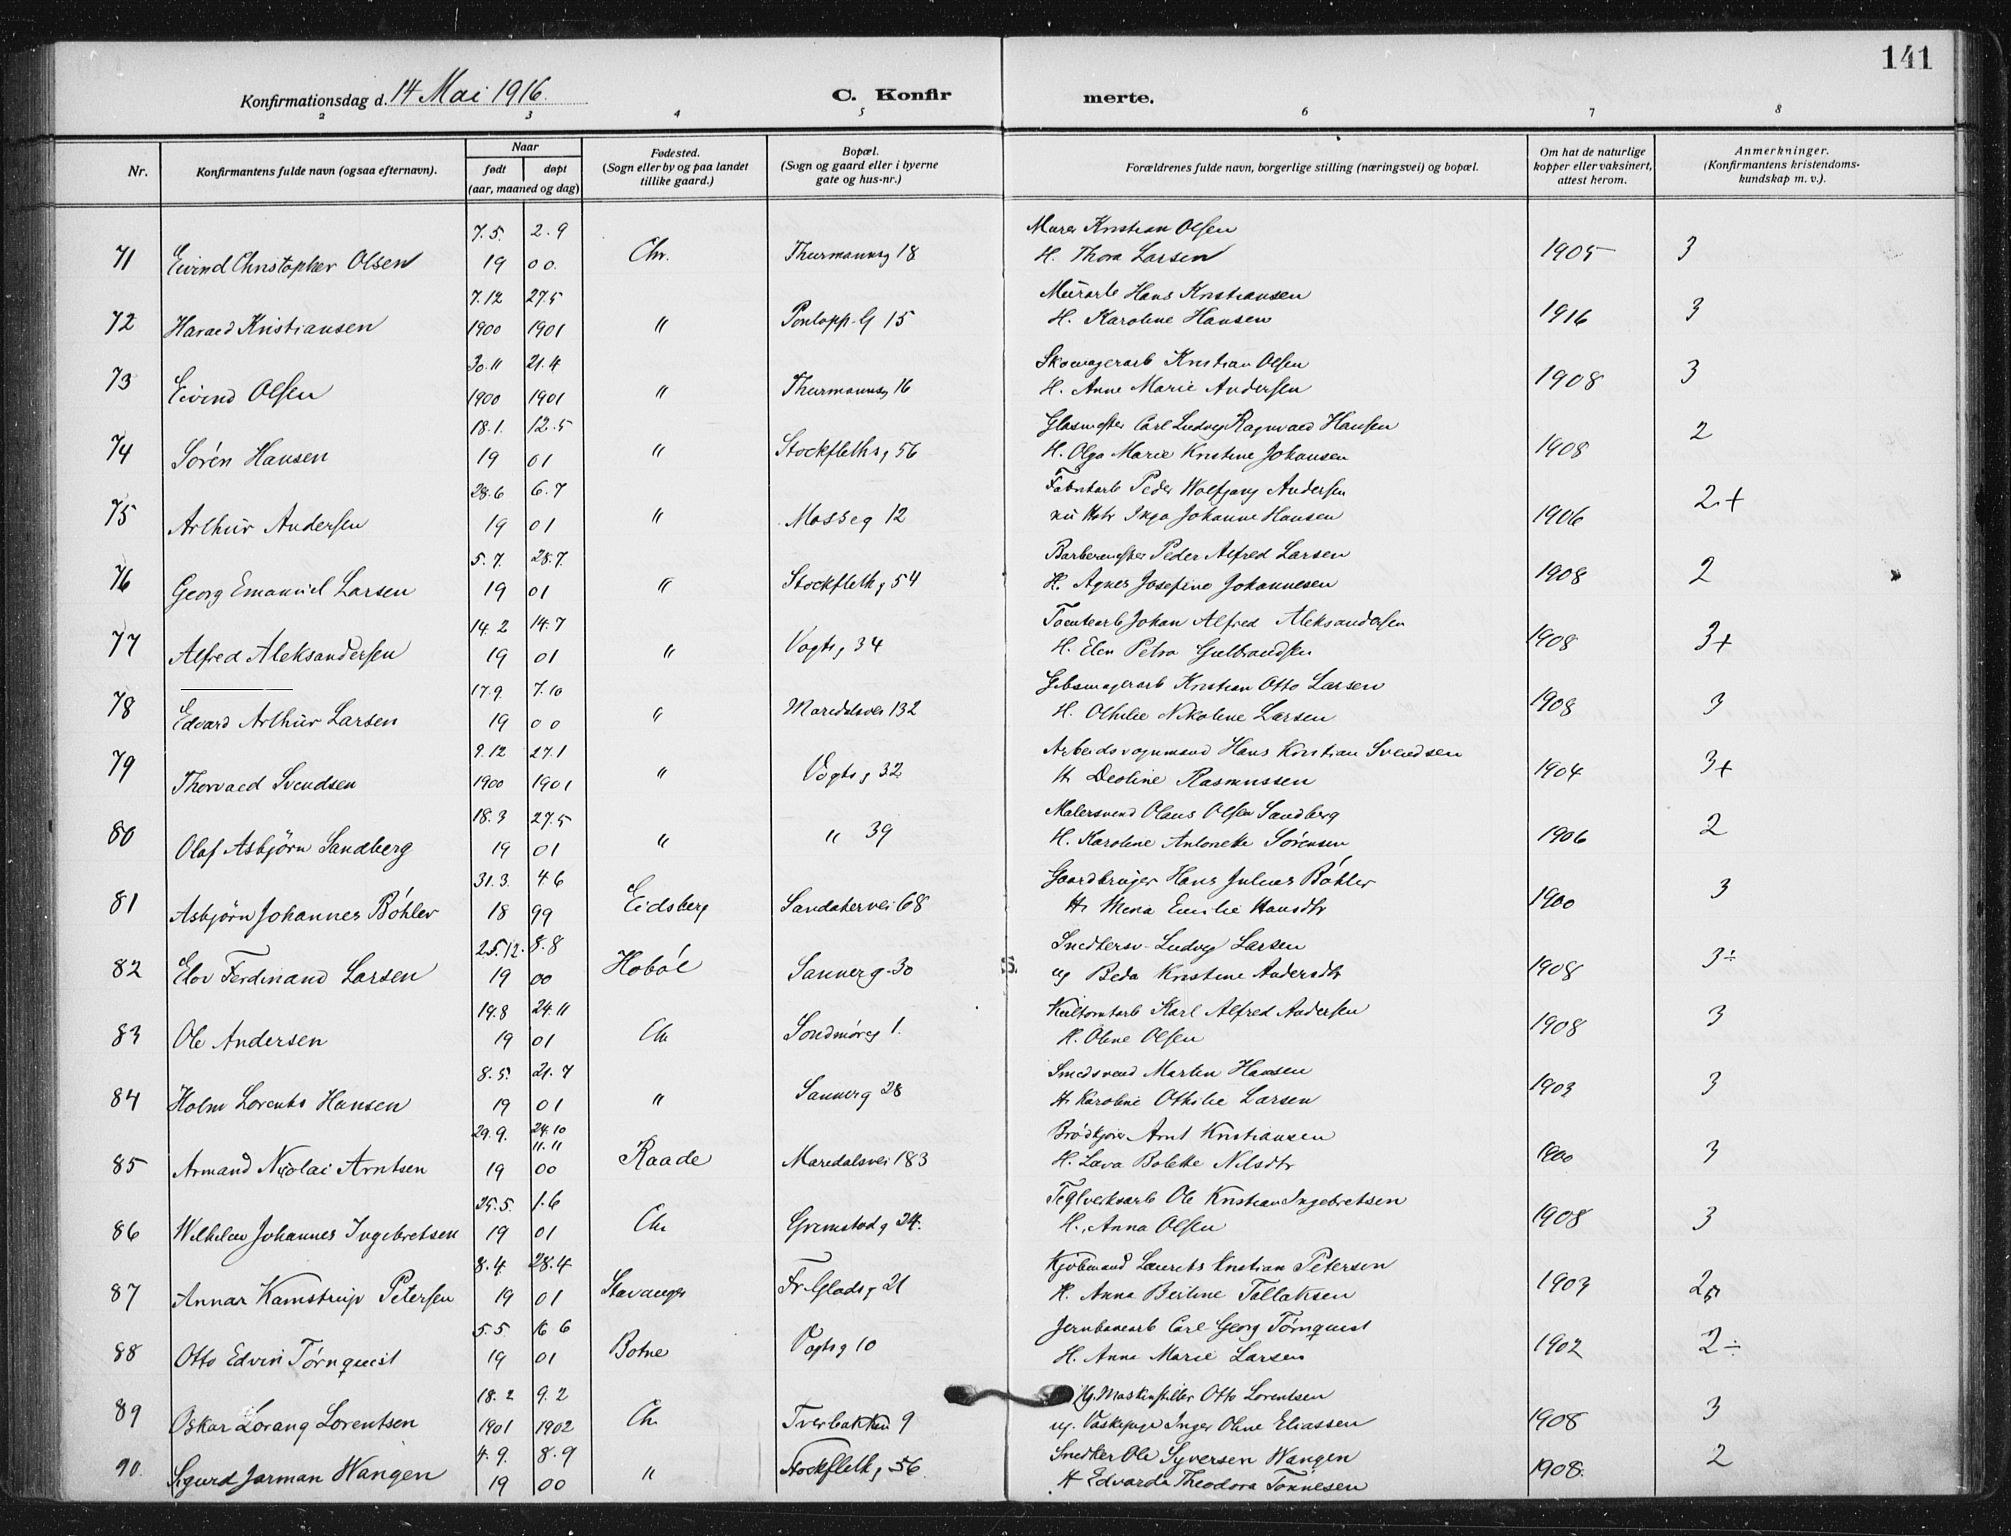 141
Konfirmationsdag d. 14 Mai 1916. C. Konfirmerte.
2 3 4 5 6 7 8
Nr. Konfirmantens fulde navn (ogsaa efternavn). Naar født døpt (aar, maaned og dag) Fødested. (Sogn eller by og paa landet tillike gaard.) Bopæl. (Sogn og gaard eller i byerne gate og hus-nr.) Forældrenes fulde navn, borgerlige stilling (næringsvei) og bopæl. Om hat de naturlige kopper eller vaksinert, attest herom. Anmerkninger. (Konfirmantens kristendoms-kundskap m. v.).
7.5. 2.9 Murer Kristian Olsen
71 Eivind Christopher Olsen 19 00. Chr. Thurmannsg 18 H. Thora Larsen 1905 3
7.12 27.5 Murarb Hans Kristiansen
72 Harald Kristiansen 1900 1901 " Pontopp. G 15 H. Karoline Hansen 1916 3
30.11 21.4 Skomagerarb Kristian Olsen
73 Eivind Olsen 1900 1901 " Thurmannsg 16 H. Anne Marie Andersen 1908 3
18.1. 12.5 Glasmester Carl Ludvig Ragnvald Hansen
74 Sörén Hansen 19 01 " Stockflethsg 56 H. Olga Marie Kristine Johansen 1908 2
28.6 6.7 Fabrikarb Peder Wolfgang Andersen
75 Arthur Andersen 19 01 " Masseg 12 Inga Johanne Hansen 1906 2+
5.7. 28.7. Barbermester Peder Alfred Larsen
76 Georg Emanuel Larsen 19 01 " Stockflethg 54 H. Agnes Josefine Johannesen 1908 2
14.2 14.7 Johan Alfred Aleksandersen
77 Alfred Aleksandersen 19 01 " Vogtsg 34 H. Elen Petra Gulbrandsen 1908 3+
17.9. 7.10 Gibsmagerarb Kristian Otto Larsen
78 Edvard Arthur Larsen 19 00 " Maridalsvei 132 H. Othilie Nikoline Larsen 1908 3
9.12 27.1 Arbeidsvognmand Hans Kristian Svendsen
79 Thorvald Svendsen 1900 1901 " Vogtsg 32 H. Deoline Rasmussen 1904 3+
18.3 27.5 Malersvend Olaus Olsen Sandberg
80 Olaf Asbjörn Sandberg 19 01 " " 39 H. Karoline Antonette Sörensen 1906 2
31.3. 4.6 Gaardbruger Hans Julius Böhler
81 Asbjörn Johannes Böhler 18 99 Eidsberg Sandakervei 68 H. Mina Emilie Hansdtr 1900 3
25.12. 8.8 Snedkersv. Ludvig Larsen
82 Elov Ferdinand Larsen 19 00 Hoböl Sannerg. 30 ug Beda Kristine Andersdtr 1908 3÷
19.8 24.11 Karl Alfred Andersen
83 Ole Andersen 19 01 Ch Söndmörsg 1. H. Oline Olsen 1908 3
8.5. 21.7 Smedsvend Martin Hansen
84 Holm Lorents Hansen 19 01 " Sannerg 28 H. Karoline Othilie Larsen 1903 3
29.9. 24.10 11.11 Brödkjörer Arnt Kristiansen
85 Armand Nicolai Arntsen 19 00 Raade Maridalsvei 183 H. Lava Bolette Nilsdtr 1900 3
25.5. 1.6 Teglverksarb Ole Kristian Ingebretsen
86 Wilhelm Johannes Ingebretsen 19 01 Ch Grimstadg 24. H. Anna Olsen 1908 3
8.4. 28.4 Kjöbmand Laurits Kristian Petersen
87 Annar Kamstrup Petersen 19 01 Stavanger Fr. Gladsg 21 H. Anna Bertine Tollaksen 1903 2
5.5. 16 6 Jernbanearb Carl Georg Törnquist
88 Otto Edvin Törnquist 19 01 Botne Vogtsg 10 H. Anna Marie Larsen 1902 2÷
18.2 9.2 Ug. Maskinstiller Otto Lorentsen
89 Oskar Lorang Lorentsen 1901 1902 Ch. Tverbakken 9 ug. Vaskepige Inger Oline Eliassen 1908 3
4.9. 8.9 Snedker Ole Syversen Wangen
90. Sigurd Jarman Wangen 19 00 " Stockflethg 56 H Edvarda Theodora Tönnesen 1908. 2